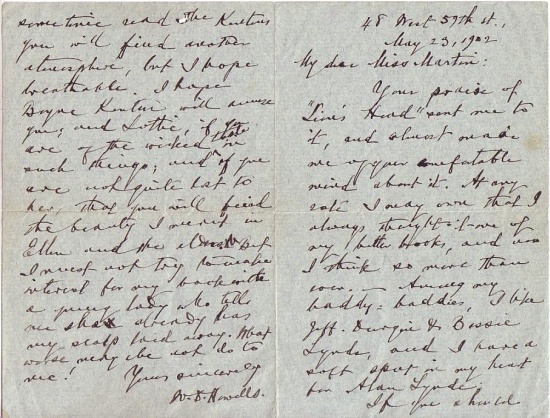 48 West 59th st.,
May 23, 1902
My dear Miss Martin:
Your praise of
"Lion's Head" sent me to
it, and almost made
me of your comfortable
mind about it. At any
rate I may own that I
always thought it one of
my better books, and now
I think so more than
ever. — Among my
baddy-baddies, I like
Jeff. Durgin & Bessie
Lynde, and I have a
soft spot in my heart
for Alan Lynde.
If you should
sometime read The Kentons
you will find another
atmosphere, but I hope
breathable. I hope
Boyne Kenton will amuse
you; and Lottie, if you
are of the wicked that
such things; and if you
are not quite lost to
her, that you will find
the beauty I meant in
Ellen and the But
I must not try to
interest for my book in
a young lady who tells
me she already has
my scalp laid away. What
worse may she not do to
me!
Yours sincerely
W. D. Howells.